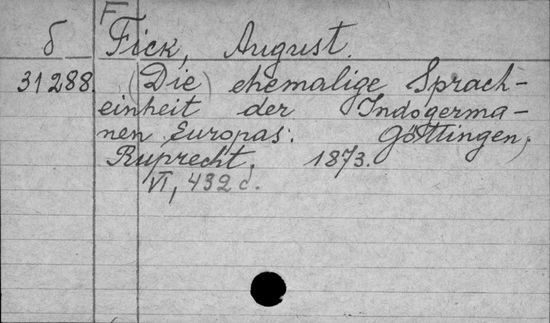 F
б Fick, August.
31288. (Die) ehemalige Sprach-
einheit der Indogerma-
nen Europas. Göttingen,
Ruprecht. 1873.
VI, 432 с.